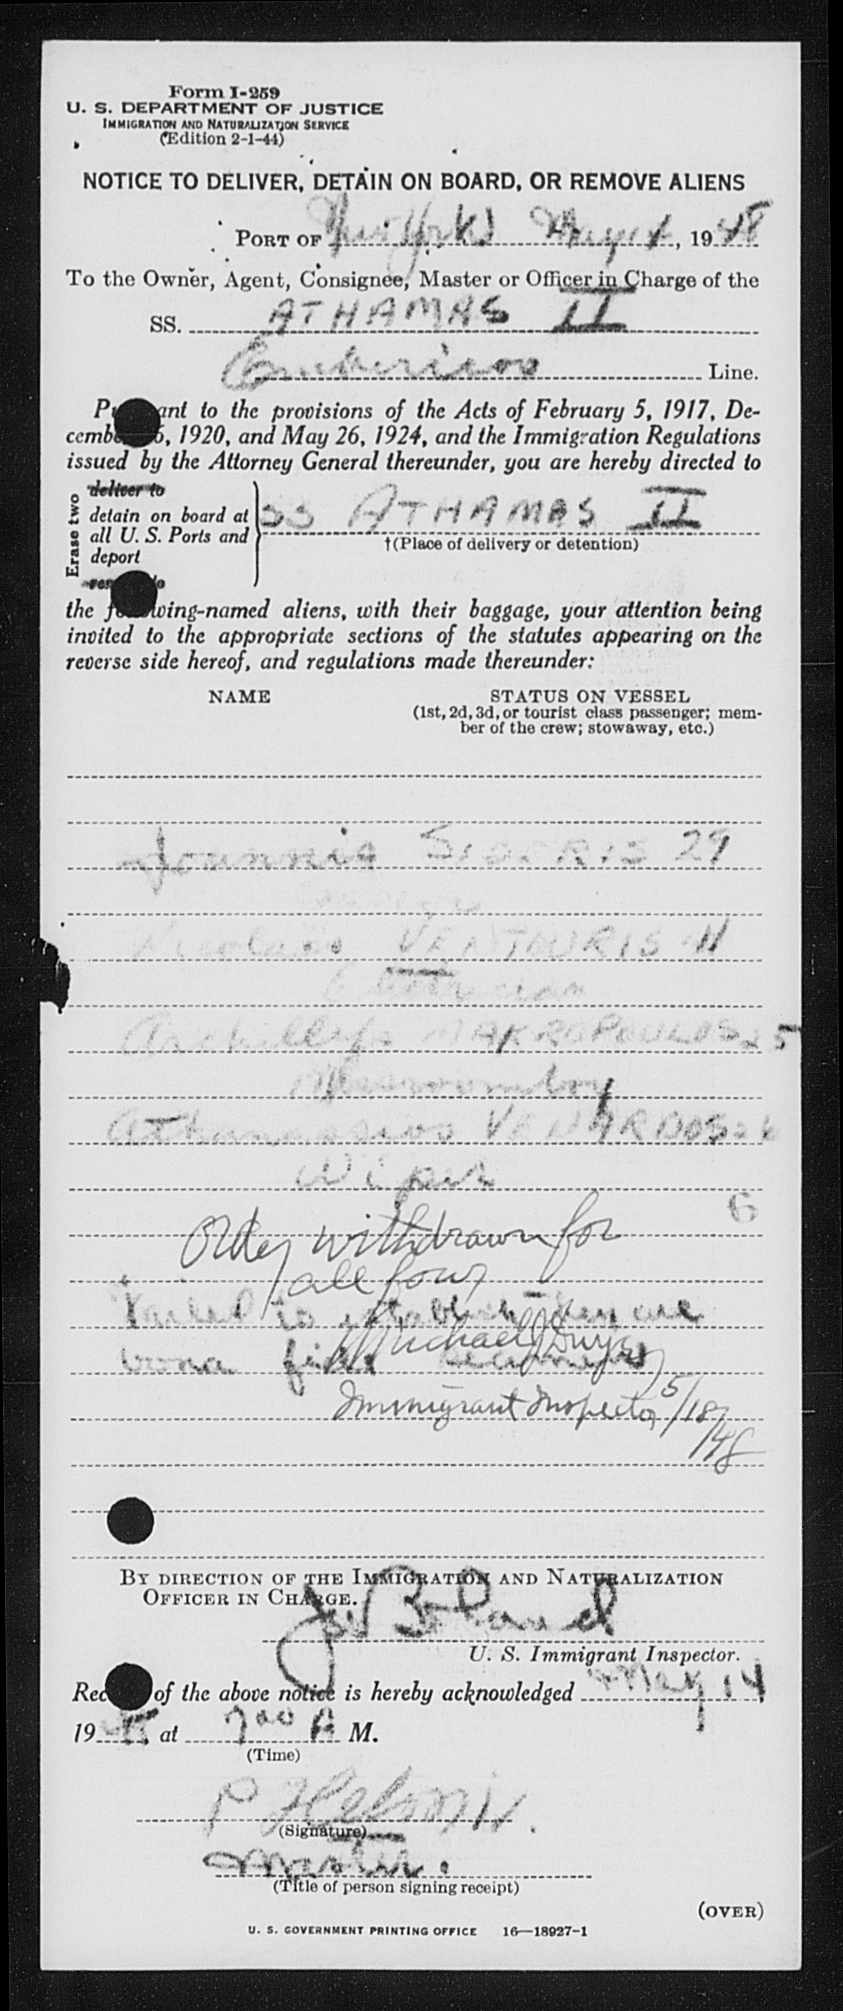 Form I-259
U. S. DEPARTMENT OF JUSTICE
IMMIGRATION AND NATURALIZATION SERVICE
(Edition 2-1-44)
NOTICE TO DELIVER, DETAIN ON BOARD, OR REMOVE ALIENS
PORT OF New York May 14, 1948
To the Owner, Agent, Consignee, Master or Officer in Charge of the
SS. ATHAMAS II
Embericos Line.
ant to the provisions of the Acts of February 5, 1917, De-
cemb 5, 1920, and May 26, 1924, and the Immigration Regulations
issued by the Attorney General thereunder, you are hereby directed to
Erase two
deliver to
detain on board at
all U. S. Ports and
deport
SS ATHAMAS II
†(Place of delivery or detention)
the following-named aliens, with their baggage, your attention being
invited to the appropriate sections of the statutes appearing on the
reverse side hereof, and regulations made thereunder:
NAME STATUS ON VESSEL
(1st, 2d, 3d, or tourist class passenger; mem-
ber of the crew; stowaway, etc.)
Joannis 29
Nicolaos VENTOURIS
MAKROPOULOS 25
Messroomboy
Athanassios VENARDOS 26
Wiper
6
Order withdrawn for
all four
Failed to establish they are
bona fide
Michael J Dwyer
Immigrant Inspector 5/18/48
BY DIRECTION OF THE IMMIGRATION AND NATURALIZATION
OFFICER IN CHARGE.
U. S. Immigrant Inspector.
Rec of the above notice is hereby acknowledged May 14
1948 at 700 A M.
(Time)
P
(Signature)
Master.
(Title of person signing receipt)
(OVER)
U. S. GOVERNMENT PRINTING OFFICE 16—18927-1